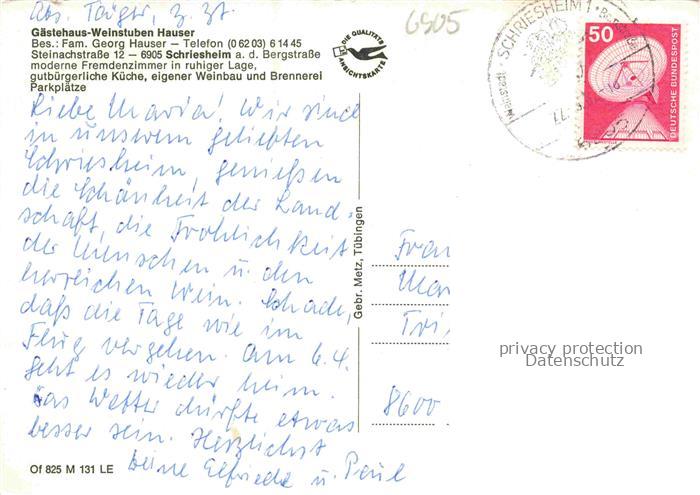 Abs. Taiger, z. Zt.
6905
Gästehaus-Weinstuben Hauser
Bes.: Fam. Georg Hauser — Telefon (0 62 03) 6 14 45
Steinachstraße 12 — 6905 Schriesheim a. d. Bergstraße
moderne Fremdenzimmer in ruhiger Lage,
gutbürgerliche Küche, eigener Weinbau und Brennerei
Parkplätze
DIE QUALITÄTS
ANSICHTSKARTE
SCHRIESHEIM 1
50
DEUTSCHE BUNDESPOST
Liebe Maria! Wir sind
in unserem geliebten
Schriesheim, genießen
die Schönheit der Land-
schaft, die Fröhlichkeit
der Menschen u. den
herrlichen Wein. Schade,
daß die Tage wie im
Flug vergehen. Am 6.4.
geht es wieder heim.
Das Wetter dürfte etwas
besser sein. Herzlichst
Deine Elfriede u. Paul
Gebr. Metz, Tübingen
Frau
Mar
Tri
8600
privacy protection
Datenschutz
Of 825 M 131 LE